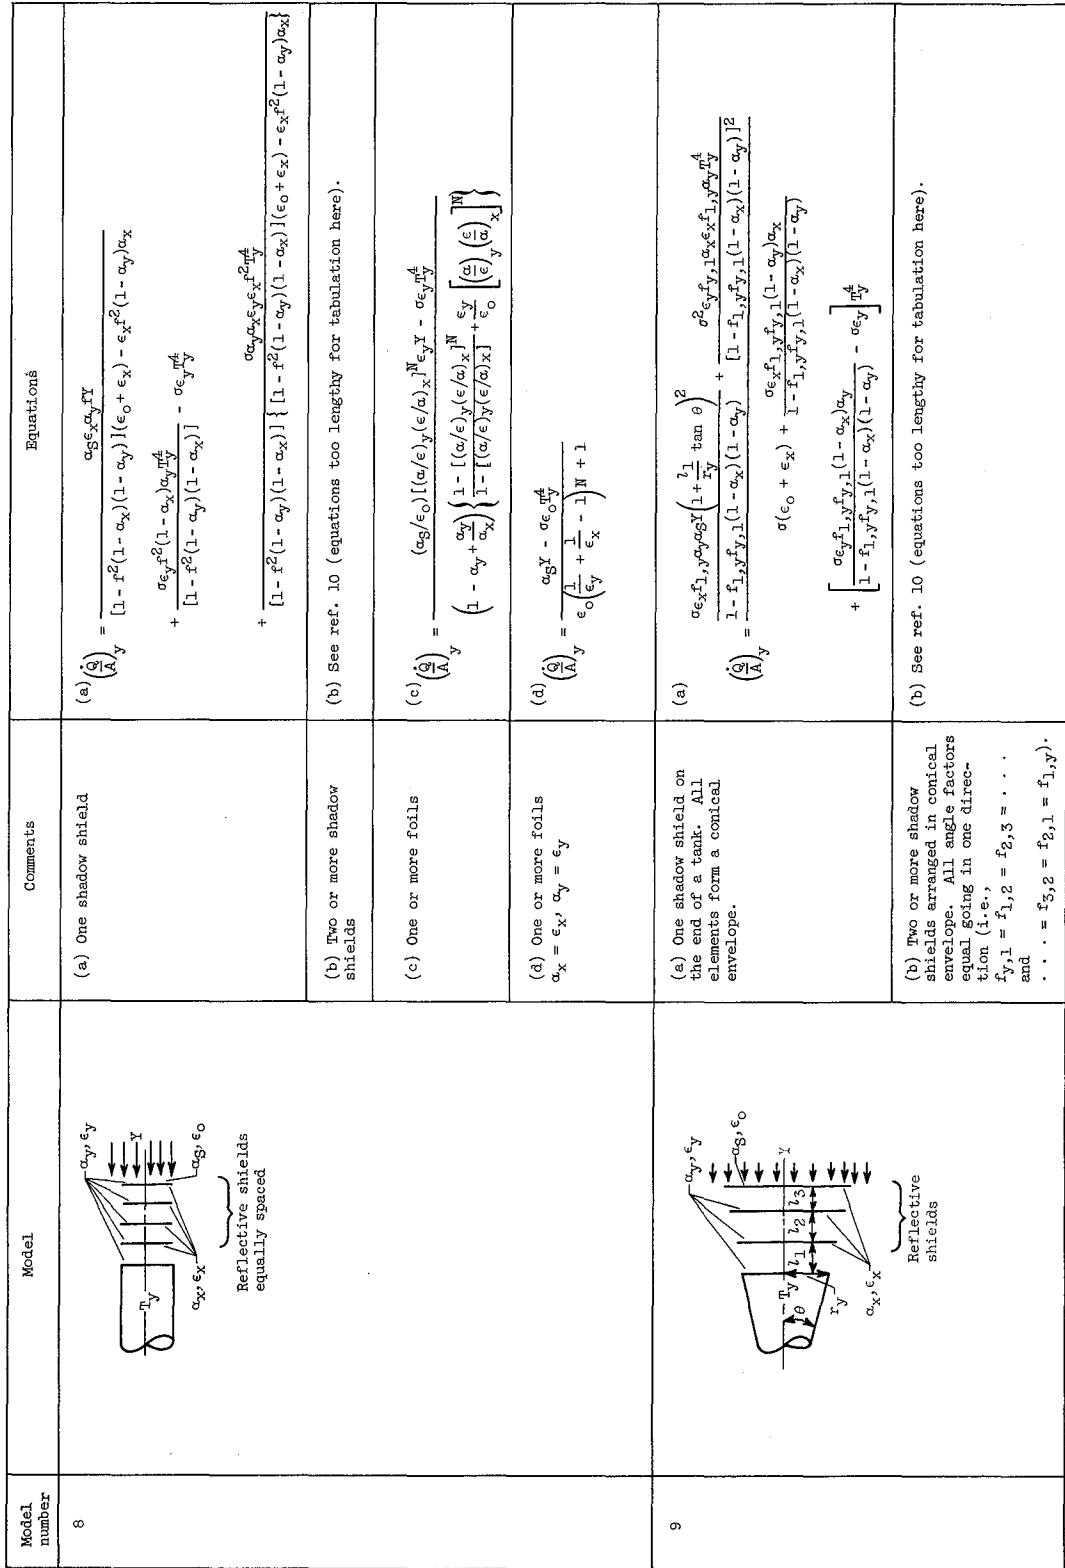 Model
number
Model
Comments
Equations
8
α_y, ϵ_y
Y
T_y
α_S, ϵ_o
α_x, ϵ_x
Reflective shields
equally spaced
(a) One shadow shield
(a) (Q̇/A)_y = α_S ϵ_x α_y f Y / {[1 - f²(1 - α_x)(1 - α_y)](ϵ_o + ϵ_x) - ϵ_x f²(1 - α_y)α_x}
+ σϵ_y f²(1 - α_x)α_y T_y⁴ / [1 - f²(1 - α_y)(1 - α_x)] - σϵ_y T_y⁴
+ σα_y α_x ϵ_y ϵ_x f² T_y⁴ / [1 - f²(1 - α_y)(1 - α_x)]{[1 - f²(1 - α_y)(1 - α_x)](ϵ_o + ϵ_x) - ϵ_x f²(1 - α_y)α_x}
(b) Two or more shadow
shields
(b) See ref. 10 (equations too lengthy for tabulation here).
(c) One or more foils
(c) (Q̇/A)_y = (α_S/ϵ_o)[(α/ϵ)_y(ϵ/α)_x]^N ϵ_y Y - σϵ_y T_y⁴ / (1 - α_y + α_y/α_x){1 - [(α/ϵ)_y(ϵ/α)_x]^N / 1 - [(α/ϵ)_y(ϵ/α)_x] + ϵ_y/ϵ_o [(α/ϵ)_y (ϵ/α)_x]^N}
(d) One or more foils
α_x = ϵ_x, α_y = ϵ_y
(d) (Q̇/A)_y = α_S Y - σϵ_o T_y⁴ / ϵ_o(1/ϵ_y + 1/ϵ_x - 1)N + 1
9
α_y, ϵ_y
α_S, ϵ_o
Y
T_y
θ
l_1
l_2
l_3
r_y
α_x, ϵ_x
Reflective
shields
(a) One shadow shield on
the end of a tank. All
elements form a conical
envelope.
(a)
(Q̇/A)_y = σϵ_x f_1,y α_y α_S Y(1 + l_1/r_y tan θ)² / 1 - f_1,y f_y,1(1 - α_x)(1 - α_y) + σ² ϵ_y f_y,1 α_x ϵ_x f_1,y α_y T_y⁴ / [1 - f_1,y f_y,1(1 - α_x)(1 - α_y)]²
σ(ϵ_o + ϵ_x) + σϵ_x f_1,y f_y,1(1 - α_y)α_x / 1 - f_1,y f_y,1(1 - α_x)(1 - α_y)
+ [σϵ_y f_1,y f_y,1(1 - α_x)α_y / 1 - f_1,y f_y,1(1 - α_x)(1 - α_y) - σϵ_y] T_y⁴
(b) Two or more shadow
shields arranged in conical
envelope. All angle factors
equal going in one direc-
tion (i.e.,
f_y,1 = f_1,2 = f_2,3 = . . .
and
. . . = f_3,2 = f_2,1 = f_1,y).
(b) See ref. 10 (equations too lengthy for tabulation here).